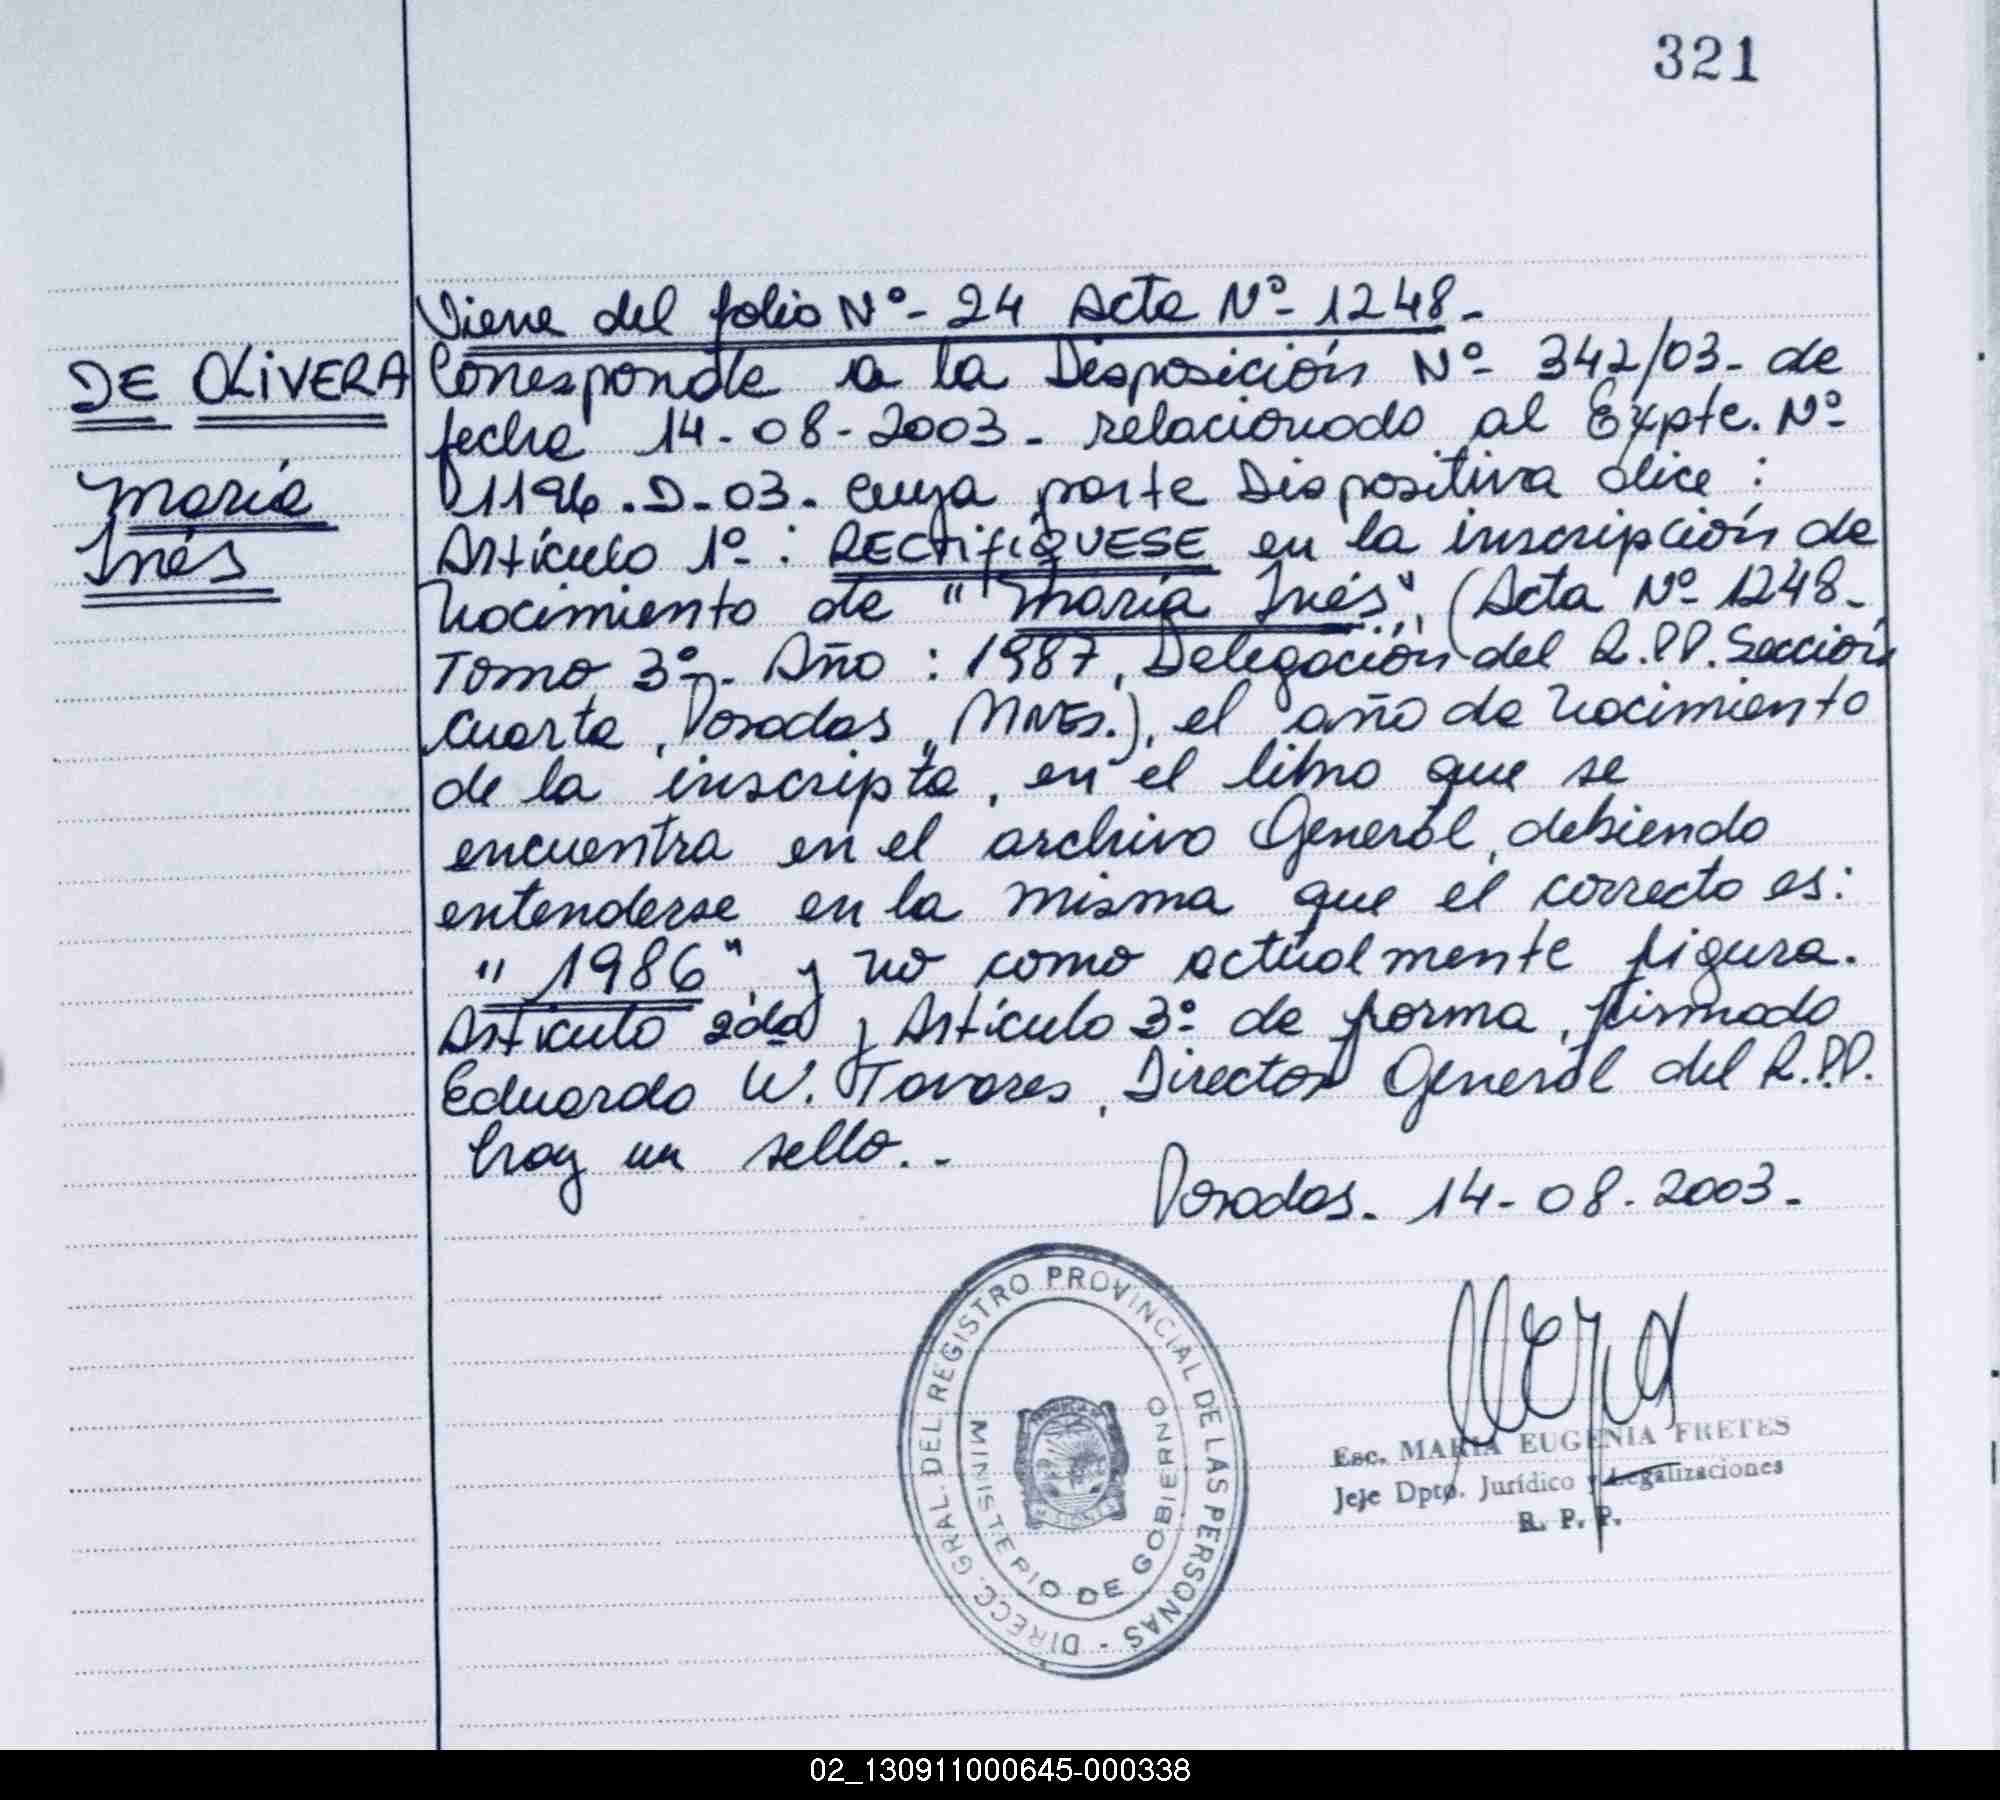 321
Viene del folio Nº- 24 Acta Nº- 1248-
DE OLIVERA
María
Inés
Corresponde a la Disposición Nº- 342/03- de
fecha 14-08-2003- relacionado al Expte. Nº-
1196-D-03- cuya parte Dispositiva dice:
Artículo 1º-: RECTIFÍQUESE en la inscripción de
Nacimiento de "María Inés", (Acta Nº- 1248-
Tomo 3º-. Año: 1987, Delegación del R.P.P. Sección
Cuarta, Posadas, MNES.), el año de nacimiento
de la inscripta, en el libro que se
encuentra en el archivo General, debiendo
entenderse en la misma que el correcto es:
"1986" y no como actualmente figura.
Artículo 2do y Artículo 3º- de forma, firmado
Eduardo W. Tavares, Director General del R.P.P.
hay un sello.-
Posadas- 14-08-2003-
DIRECC. GRAL. DEL REGISTRO PROVINCIAL DE LAS PERSONAS -
MINISTERIO DE GOBIERNO
Esc. MARIA EUGENIA FRETES
Jeje Dpto. Jurídico y Legalizaciones
R. P. P.
02_130911000645-000338